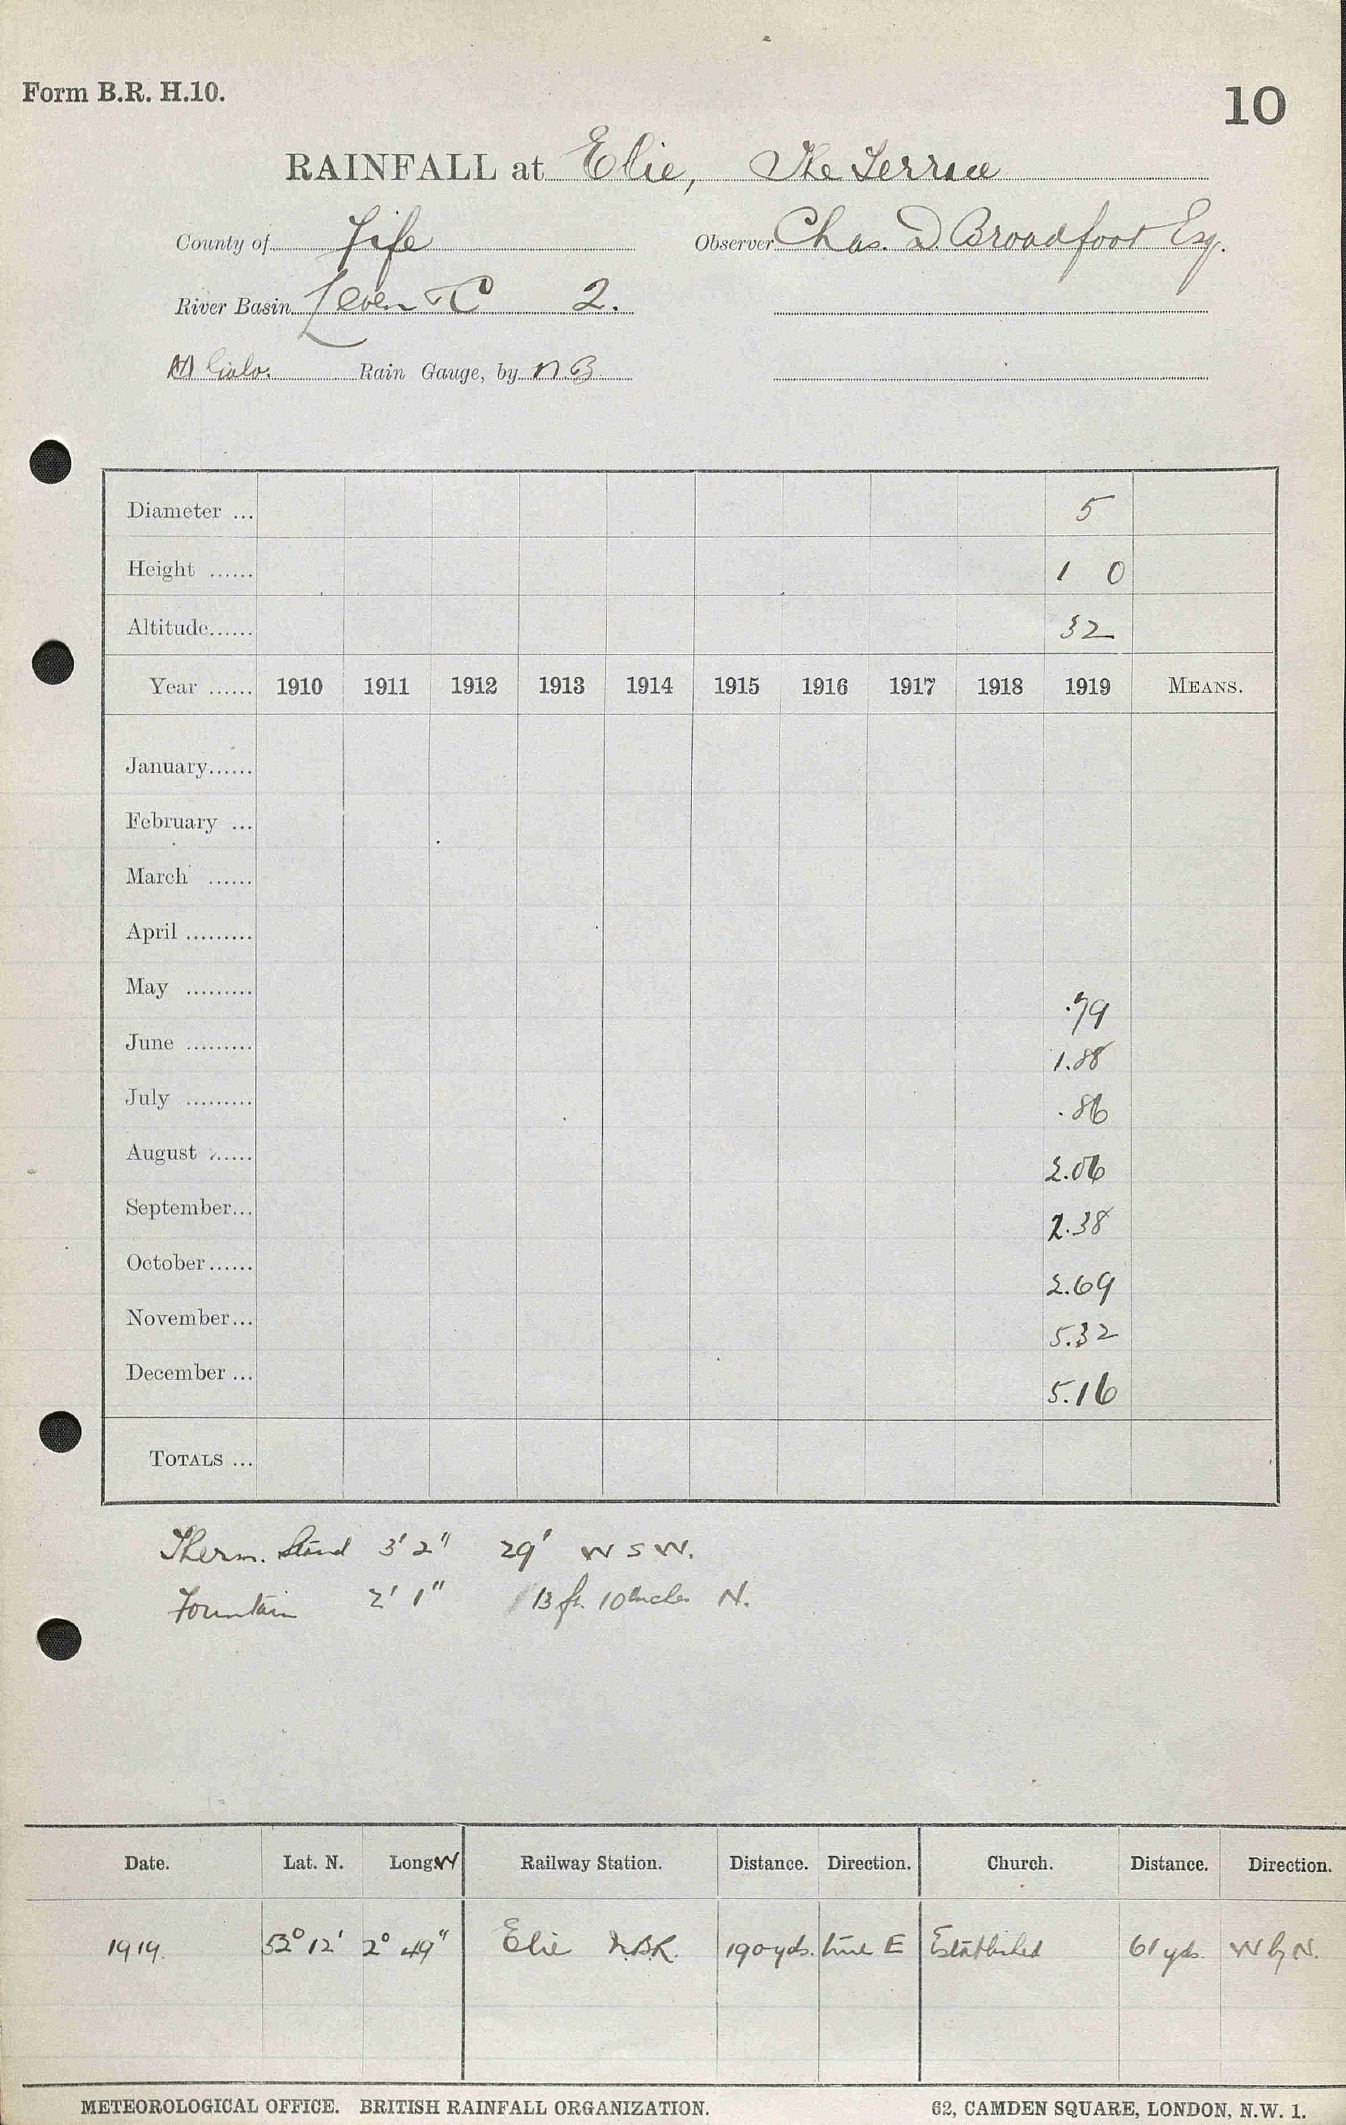 Form B.R. H.10.
10
RAINFALL at Elie, The Terrace
County of Fife
Observer Chas. D Broadfoot Esq.
River Basin Leven 2.
Rain Gauge, by N.B.
Diameter ... 5
Height ...... 1 0
Altitude...... 32
Year ...... 1910 1911 1912 1913 1914 1915 1916 1917 1918 1919 MEANS.
January......
February ...
March ......
April .........
May ......... .79
June ......... 1.88
July ......... .86
August ...... 2.06
September... 2.38
October...... 2.69
November... 5.32
December ... 5.16
TOTALS ...
Therm. Stand 3' 2" 29' W S W.
Fountain 2' 1" 13 ft. 10 inches N.
Date. Lat. N. Long. W Railway Station. Distance. Direction. Church. Distance. Direction.
1919. 52° 12' 2° 49" Elie N.B.R. 190 yds. true E Established 61 yds. W by N.
METEOROLOGICAL OFFICE. BRITISH RAINFALL ORGANIZATION. 62, CAMDEN SQUARE, LONDON, N.W. 1.